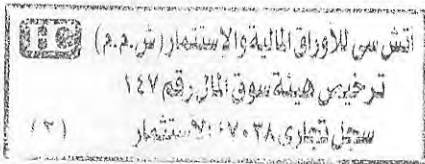 اتش سى للأوراق المالية والإستثمار (ش.م.م) HC
ترخيص هيئة سوق المال رقم ١٤٧
سجل تجارى ٠٧٠٣٨ الاستثمار (٣)